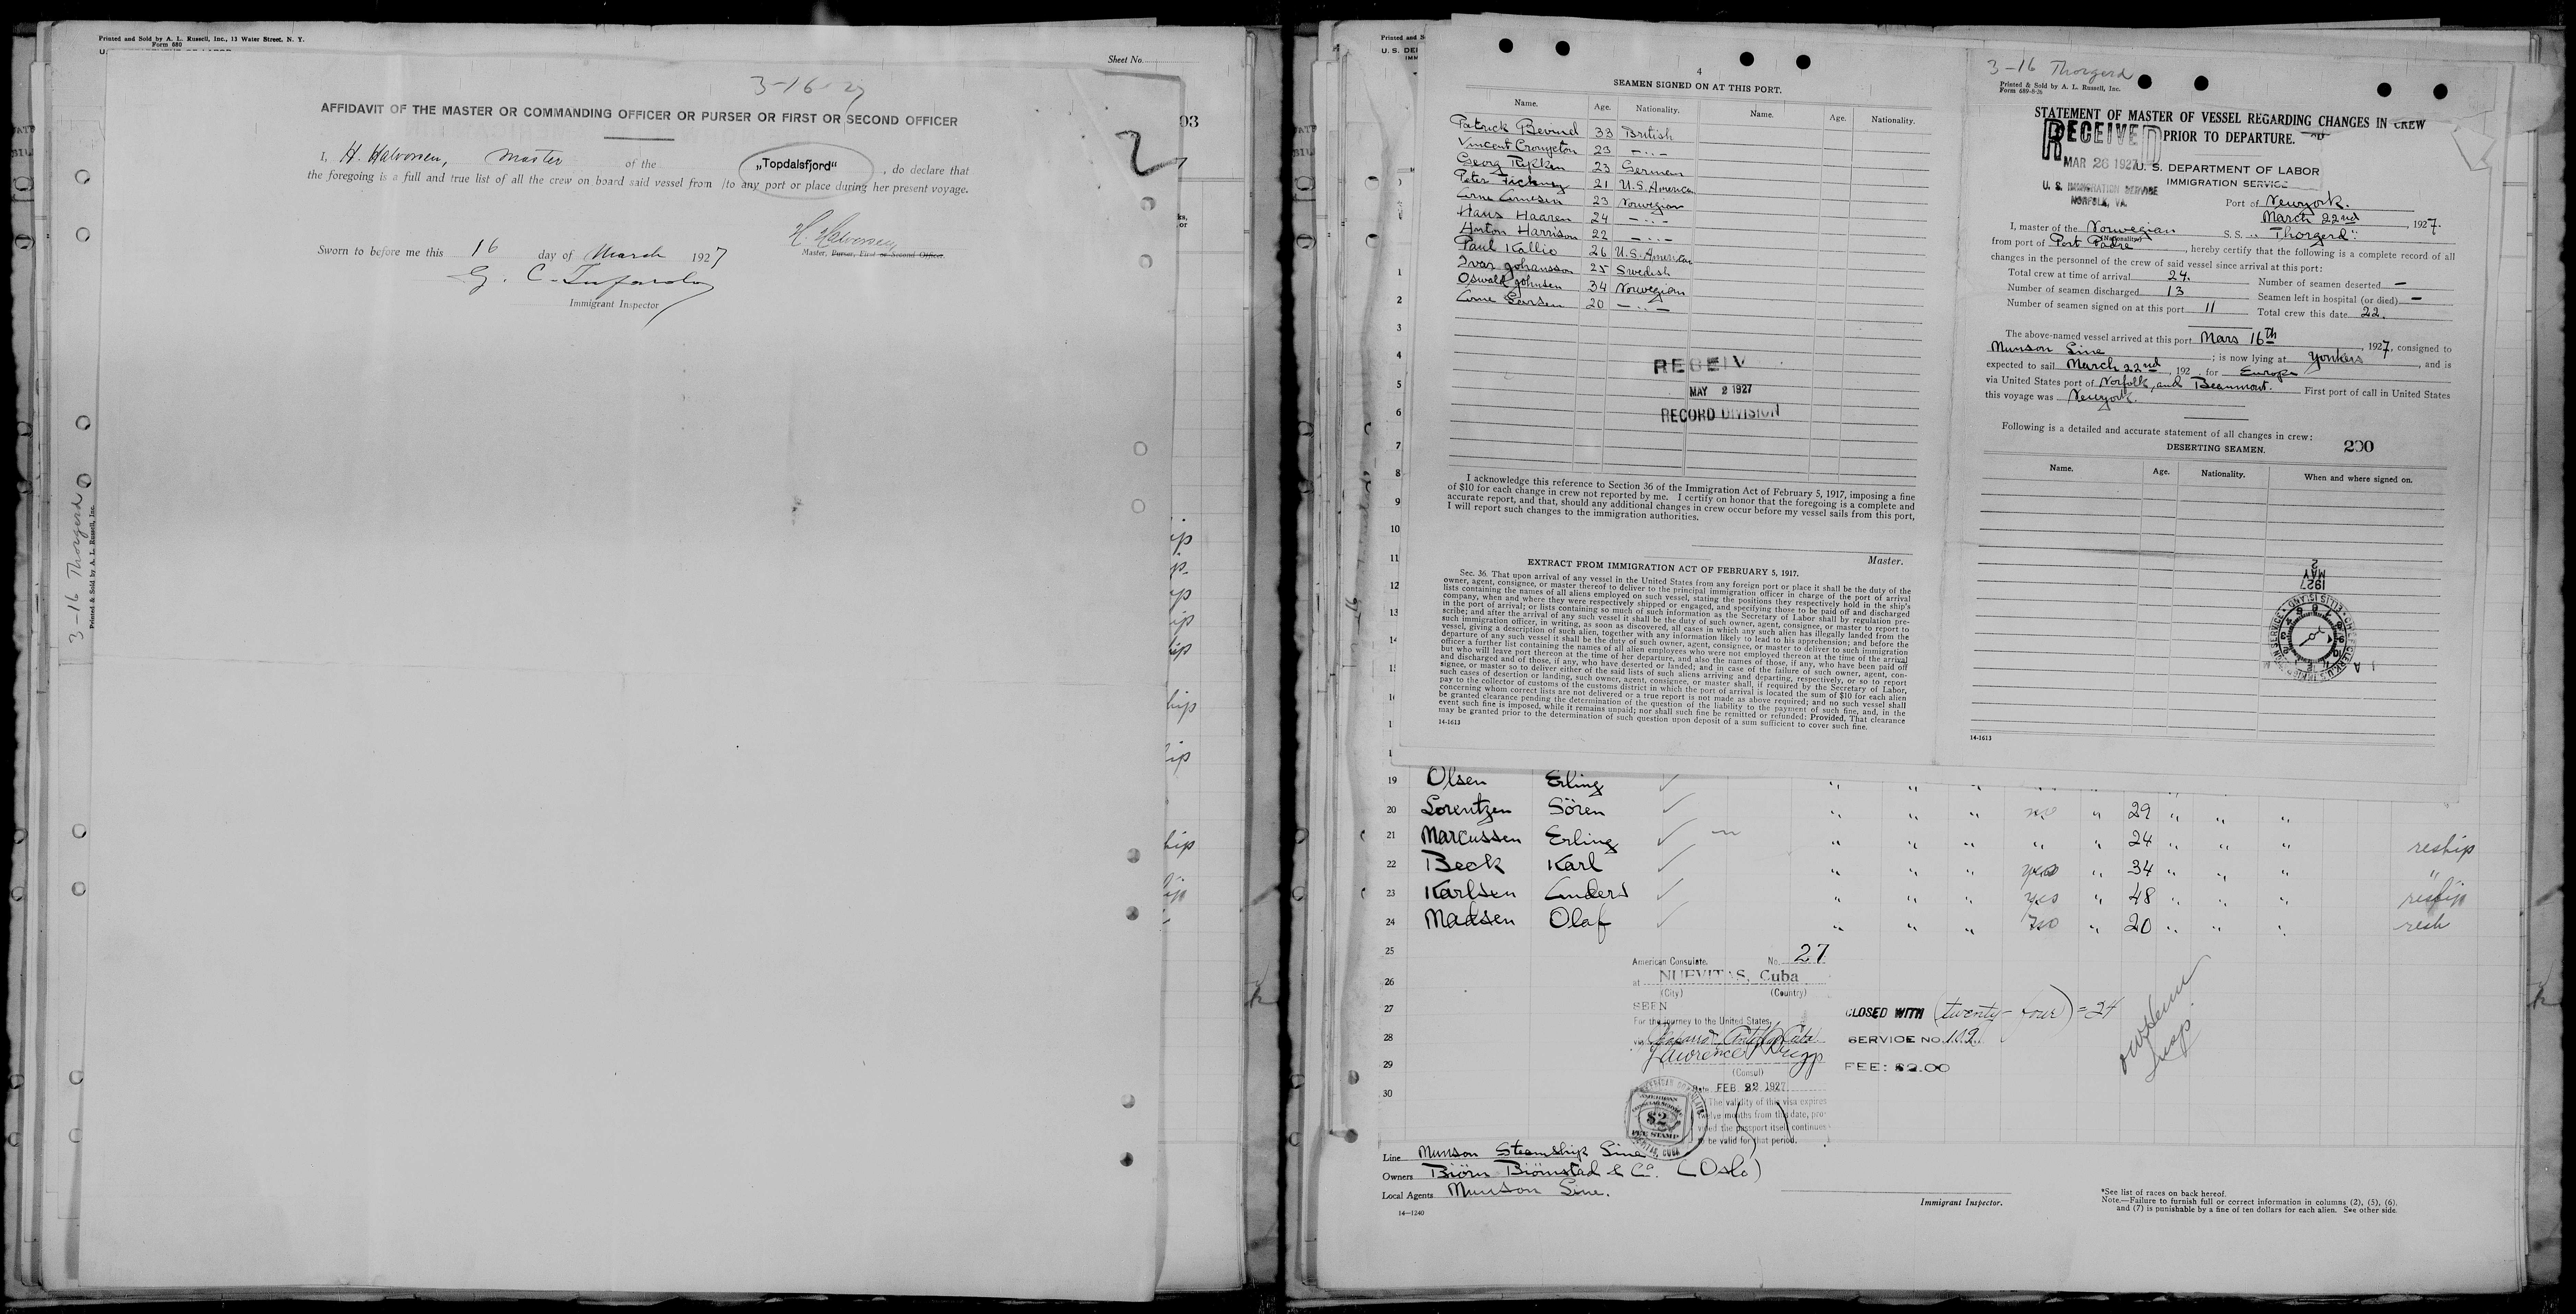 Printed and Sold by A. L. Russell, Inc., 13 Water Street, N. Y.
Form 680
Sheet No.
3-16-27
AFFIDAVIT OF THE MASTER OR COMMANDING OFFICER OR PURSER OR FIRST OR SECOND OFFICER
93
2
I, H. Halvorsen, Master of the „Topdalsfjord“, do declare that
the foregoing is a full and true list of all the crew on board said vessel from /to any port or place during her present voyage.
H. Halvorsen
Master, Purser, First or Second Officer.
Sworn to before me this 16 day of March 1927
G. C.
Immigrant Inspector
3-16 Thorgerd
Printed & Sold by A. L. Russell, Inc.
4
SEAMEN SIGNED ON AT THIS PORT.
Name. Age. Nationality. Name. Age. Nationality.
Patrick 33 British
Vincent Crompton 23 -"-
Georg 23 German
Peter 21 U.S. American
Arne Arnesen 23 Norwegian
Hans Haaren 24 -"-
Anton Harrison 22 -"-
Paul Kallio 26 U.S. American
Ivar Johansson 25 Swedish
Oswald Johnsen 34 Norwegian
Arne Larsen 20 -"-
RECEIV
MAY 2 1927
RECORD DIVISION
I acknowledge this reference to Section 36 of the Immigration Act of February 5, 1917, imposing a fine
of $10 for each change in crew not reported by me. I certify on honor that the foregoing is a complete and
accurate report, and that, should any additional changes in crew occur before my vessel sails from this port,
I will report such changes to the immigration authorities.
Master.
EXTRACT FROM IMMIGRATION ACT OF FEBRUARY 5, 1917.
Sec. 36. That upon arrival of any vessel in the United States from any foreign port or place it shall be the duty of the
owner, agent, consignee, or master thereof to deliver to the principal immigration officer in charge of the port of arrival
lists containing the names of all aliens employed on such vessel, stating the positions they respectively hold in the ship's
company, when and where they were respectively shipped or engaged, and specifying those to be paid off and discharged
in the port of arrival; or lists containing so much of such information as the Secretary of Labor shall by regulation pre-
scribe; and after the arrival of any such vessel it shall be the duty of such owner, agent, consignee, or master to report to
such immigration officer, in writing, as soon as discovered, all cases in which any such alien has illegally landed from the
vessel, giving a description of such alien, together with any information likely to lead to his apprehension; and before the
departure of any such vessel it shall be the duty of such owner, agent, consignee, or master to deliver to such immigration
officer a further list containing the names of all alien employees who were not employed thereon at the time of the arrival
but who will leave port thereon at the time of her departure, and also the names of those, if any, who have been paid off
and discharged and of those, if any, who have deserted or landed; and in case of the failure of such owner, agent, con-
signee, or master so to deliver either of the said lists of such aliens arriving and departing, respectively, or so to report
such cases of desertion or landing, such owner, agent, consignee, or master shall, if required by the Secretary of Labor,
pay to the collector of customs of the customs district in which the port of arrival is located the sum of $10 for each alien
concerning whom correct lists are not delivered or a true report is not made as above required; and no such vessel shall
be granted clearance pending the determination of the question of the liability to the payment of such fine, and, in the
event such fine is imposed, while it remains unpaid; nor shall such fine be remitted or refunded: Provided, That clearance
may be granted prior to the determination of such question upon deposit of a sum sufficient to cover such fine.
14-1613
3-16 Thorgerd
Printed & Sold by A. L. Russell, Inc.
Form 689-8-26
STATEMENT OF MASTER OF VESSEL REGARDING CHANGES IN CREW
PRIOR TO DEPARTURE.
RECEIVED
MAR 26 1927
U. S. IMMIGRATION SERVICE
NORFOLK, VA.
U. S. DEPARTMENT OF LABOR
IMMIGRATION SERVICE
Port of Newyork.
March 22nd, 1927.
I, master of the Norwegian S.S. "Thorgerd"
(Nationality)
from port of Port Padre, hereby certify that the following is a complete record of all
changes in the personnel of the crew of said vessel since arrival at this port:
Total crew at time of arrival 24. Number of seamen deserted —
Number of seamen discharged 13 Seamen left in hospital (or died) —
Number of seamen signed on at this port 11 Total crew this date 22.
The above-named vessel arrived at this port Mars 16th, 1927, consigned to
Munson Line; is now lying at Yonkers, and is
expected to sail March 22nd, 192 , for Europe
via United States port of Norfolk, and Beaumont. First port of call in United States
this voyage was Newyork.
Following is a detailed and accurate statement of all changes in crew:
200
DESERTING SEAMEN.
Name. Age. Nationality. When and where signed on.
1927 MAY 2
14-1613
19 Olsen Erling
20 Lorentzen Sören no 29
21 Marcussen Erling 24 reship
22 Beck Karl yes 34 "
23 Karlsen Anders yes 48 reship
24 Madsen Olaf no 20 resh
25
26
27
28
29
30
American Consulate. No. 27
at NUEVITAS, Cuba
(City) (Country)
SEEN
For the journey to the United States,
via
Lawrence
(Consul)
Date FEB 22 1927
The validity of this visa expires
twelve months from this date, pro-
vided the passport itself continues
to be valid for that period.
AMERICAN
$2
FEE STAMP
CLOSED WITH (twenty-four) = 24
SERVICE NO. 102
FEE: $2.00
Line Munson Steamship Line
Owners Biörn Biörnstad & Co. (Oslo)
Local Agents Munson Line.
14-1240
Immigrant Inspector.
*See list of races on back hereof.
Note.—Failure to furnish full or correct information in columns (2), (5), (6),
and (7) is punishable by a fine of ten dollars for each alien. See other side.